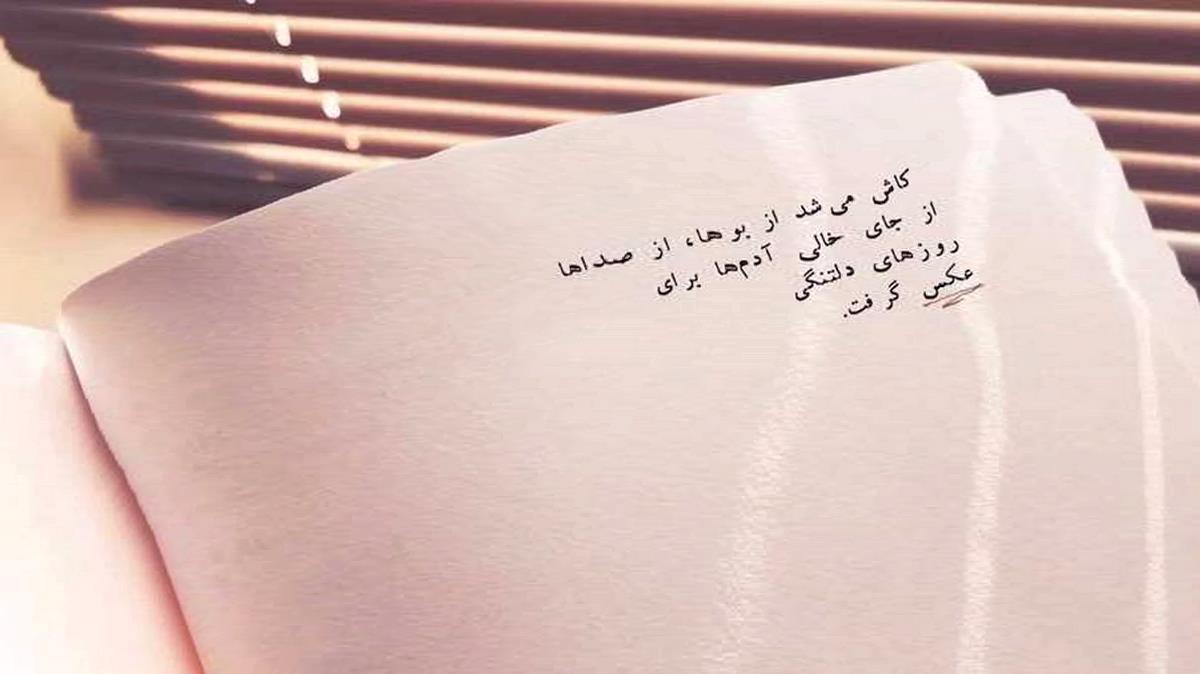 کاش می‌شد از بوها، از صداها
از جای خالی آدم‌ها برای
روزهای دلتنگی
عکس گرفت.